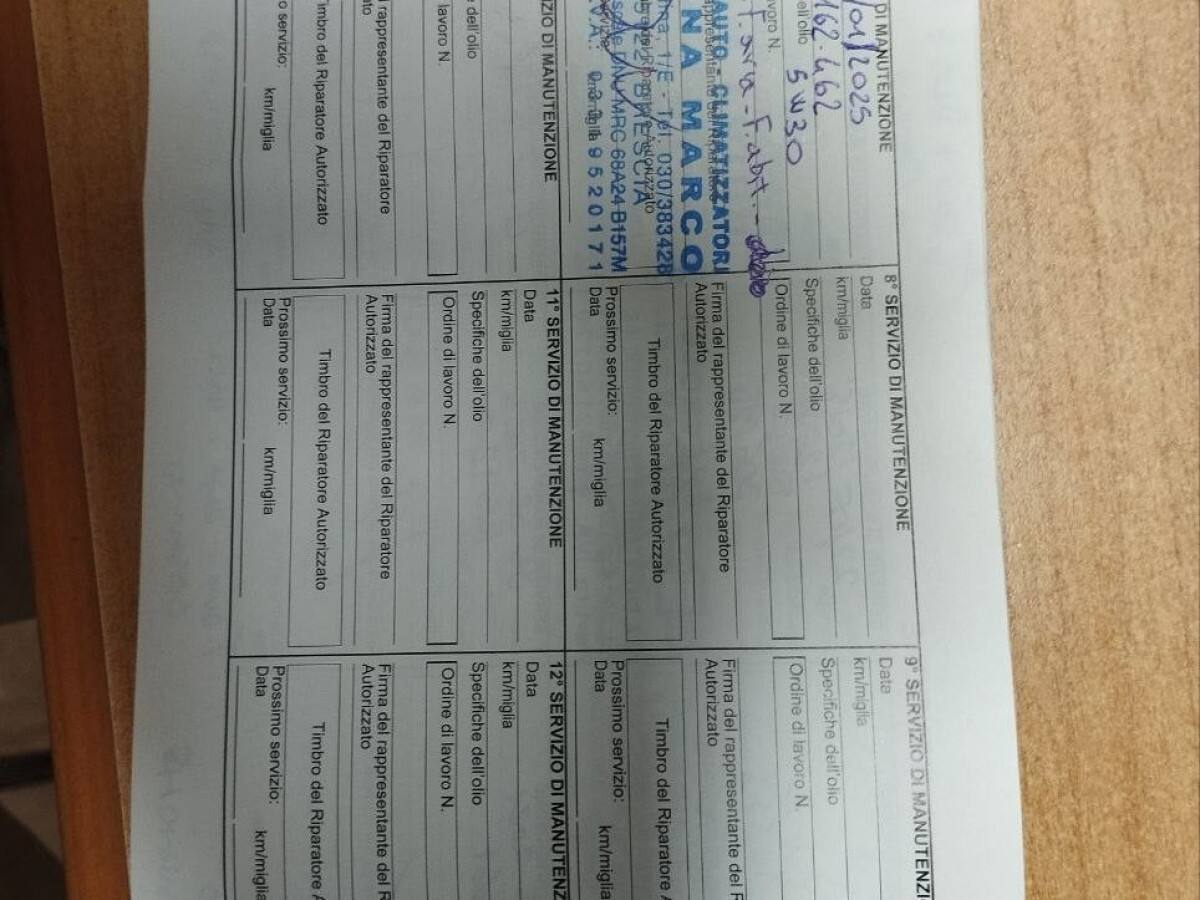 DI MANUTENZIONE
/01/2025
162.462
ell'olio 5W30
avoro N.
AUTO - CLIMATIZZATORI
NA MARCO
1/E - Tel. 030/383428
BRESCIA
MRG 68A24 B157M
9 5 2 0 1 7 1
8° SERVIZIO DI MANUTENZIONE
Data
km/miglia
Specifiche dell'olio
Ordine di lavoro N.
Firma del rappresentante del Riparatore
Autorizzato
Timbro del Riparatore Autorizzato
Prossimo servizio:
Data km/miglia
9° SERVIZIO DI MANUTENZI
Data
km/miglia
Specifiche dell'olio
Ordine di lavoro N.
Firma del rappresentante del R
Autorizzato
Timbro del Riparatore A
Prossimo servizio:
Data km/miglia
IZIO DI MANUTENZIONE
e dell'olio
lavoro N.
l rappresentante del Riparatore
ato
imbro del Riparatore Autorizzato
o servizio:
km/miglia
11° SERVIZIO DI MANUTENZIONE
Data
km/miglia
Specifiche dell'olio
Ordine di lavoro N.
Firma del rappresentante del Riparatore
Autorizzato
Timbro del Riparatore Autorizzato
Prossimo servizio:
Data km/miglia
12° SERVIZIO DI MANUTENZ
Data
km/miglia
Specifiche dell'olio
Ordine di lavoro N.
Firma del rappresentante del R
Autorizzato
Timbro del Riparatore A
Prossimo servizio:
Data km/miglia